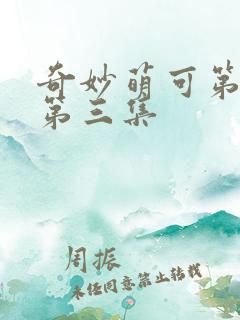 奇妙萌可第
第三集
周振
未经同意禁止转载